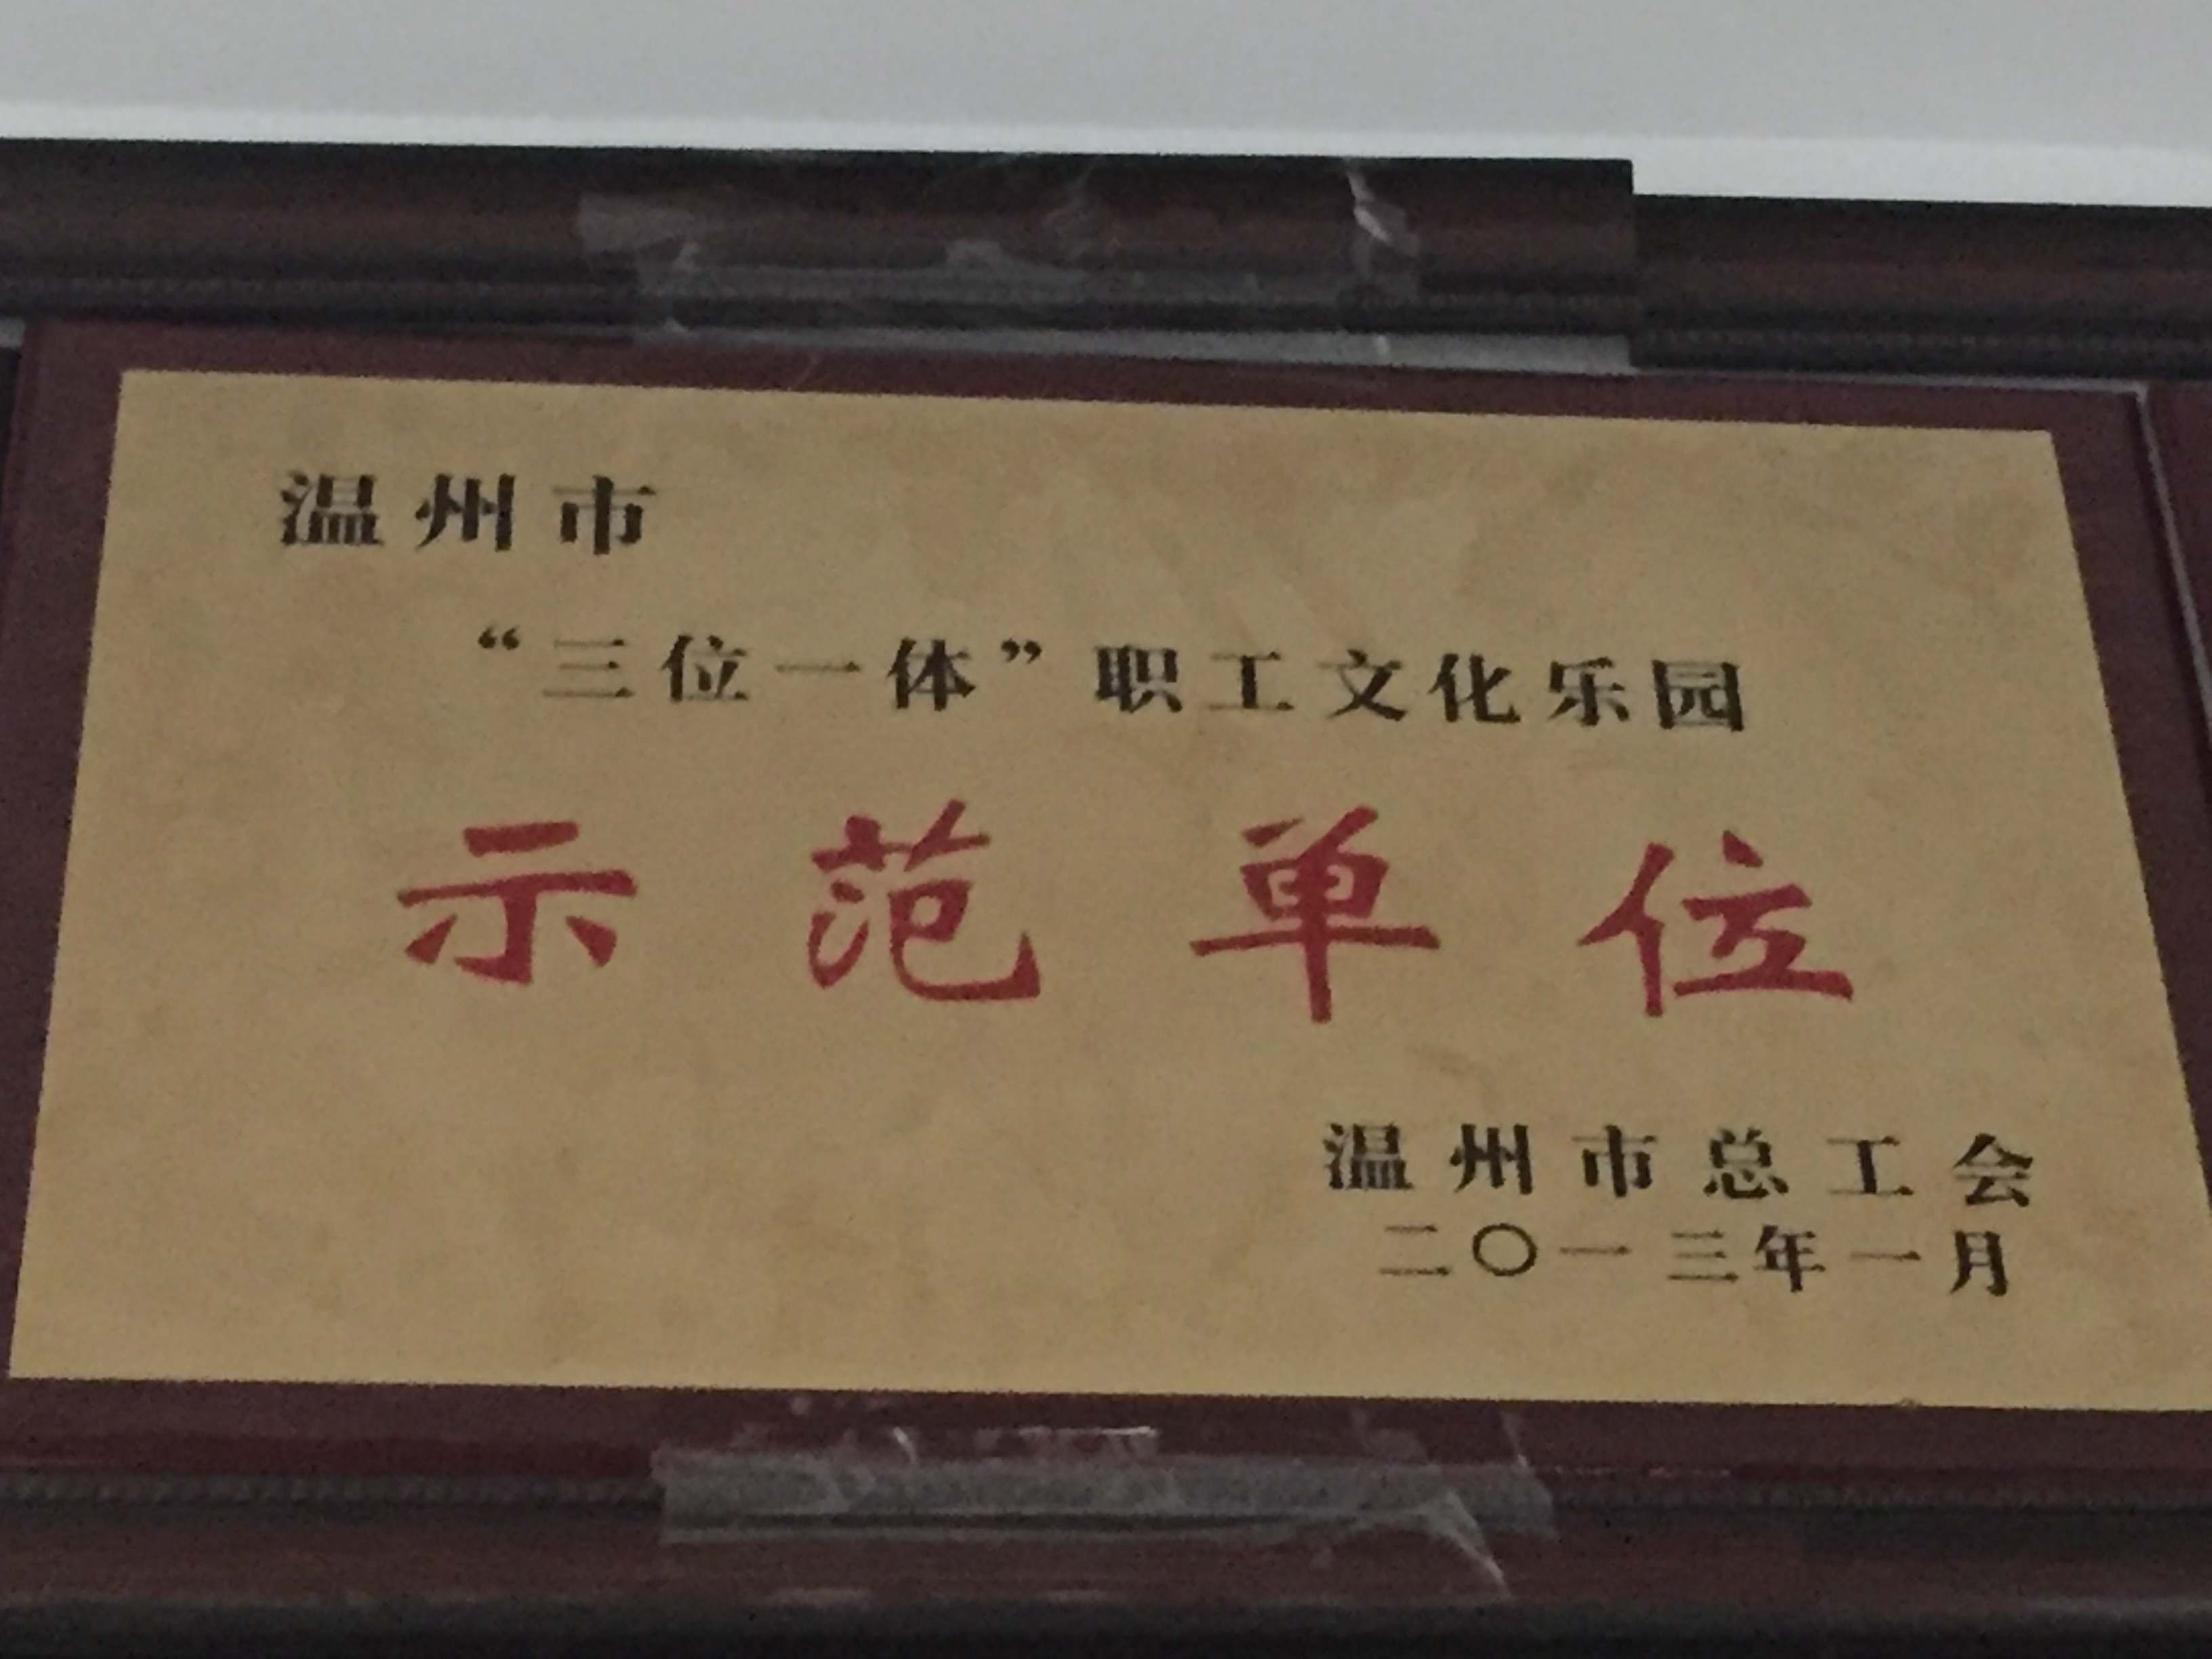 温州市
“三位一体”职工文化乐园
示范单位
温州市总工会
二〇一三年一月